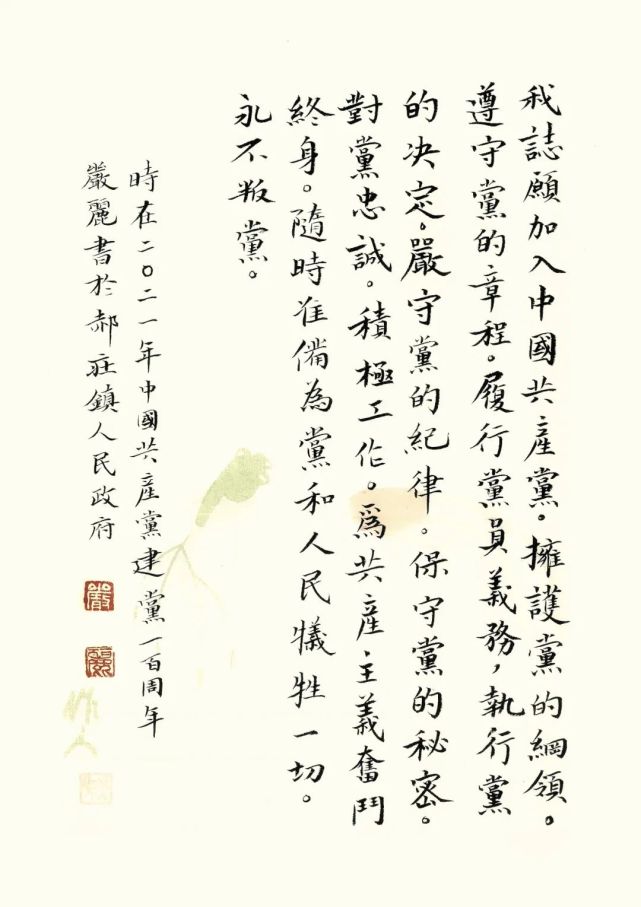 我誌願加入中國共產黨。擁護黨的綱領。
遵守黨的章程。履行黨員義務，執行黨
的決定。嚴守黨的紀律。保守黨的秘密。
對黨忠誠。積極工作。爲共產主義奮鬥
終身。隨時准備為黨和人民犠牲一切。
永不叛黨。
時在二〇二一年中國共產黨建黨一百周年
嚴麗書於郝莊鎮人民政府
嚴
麗